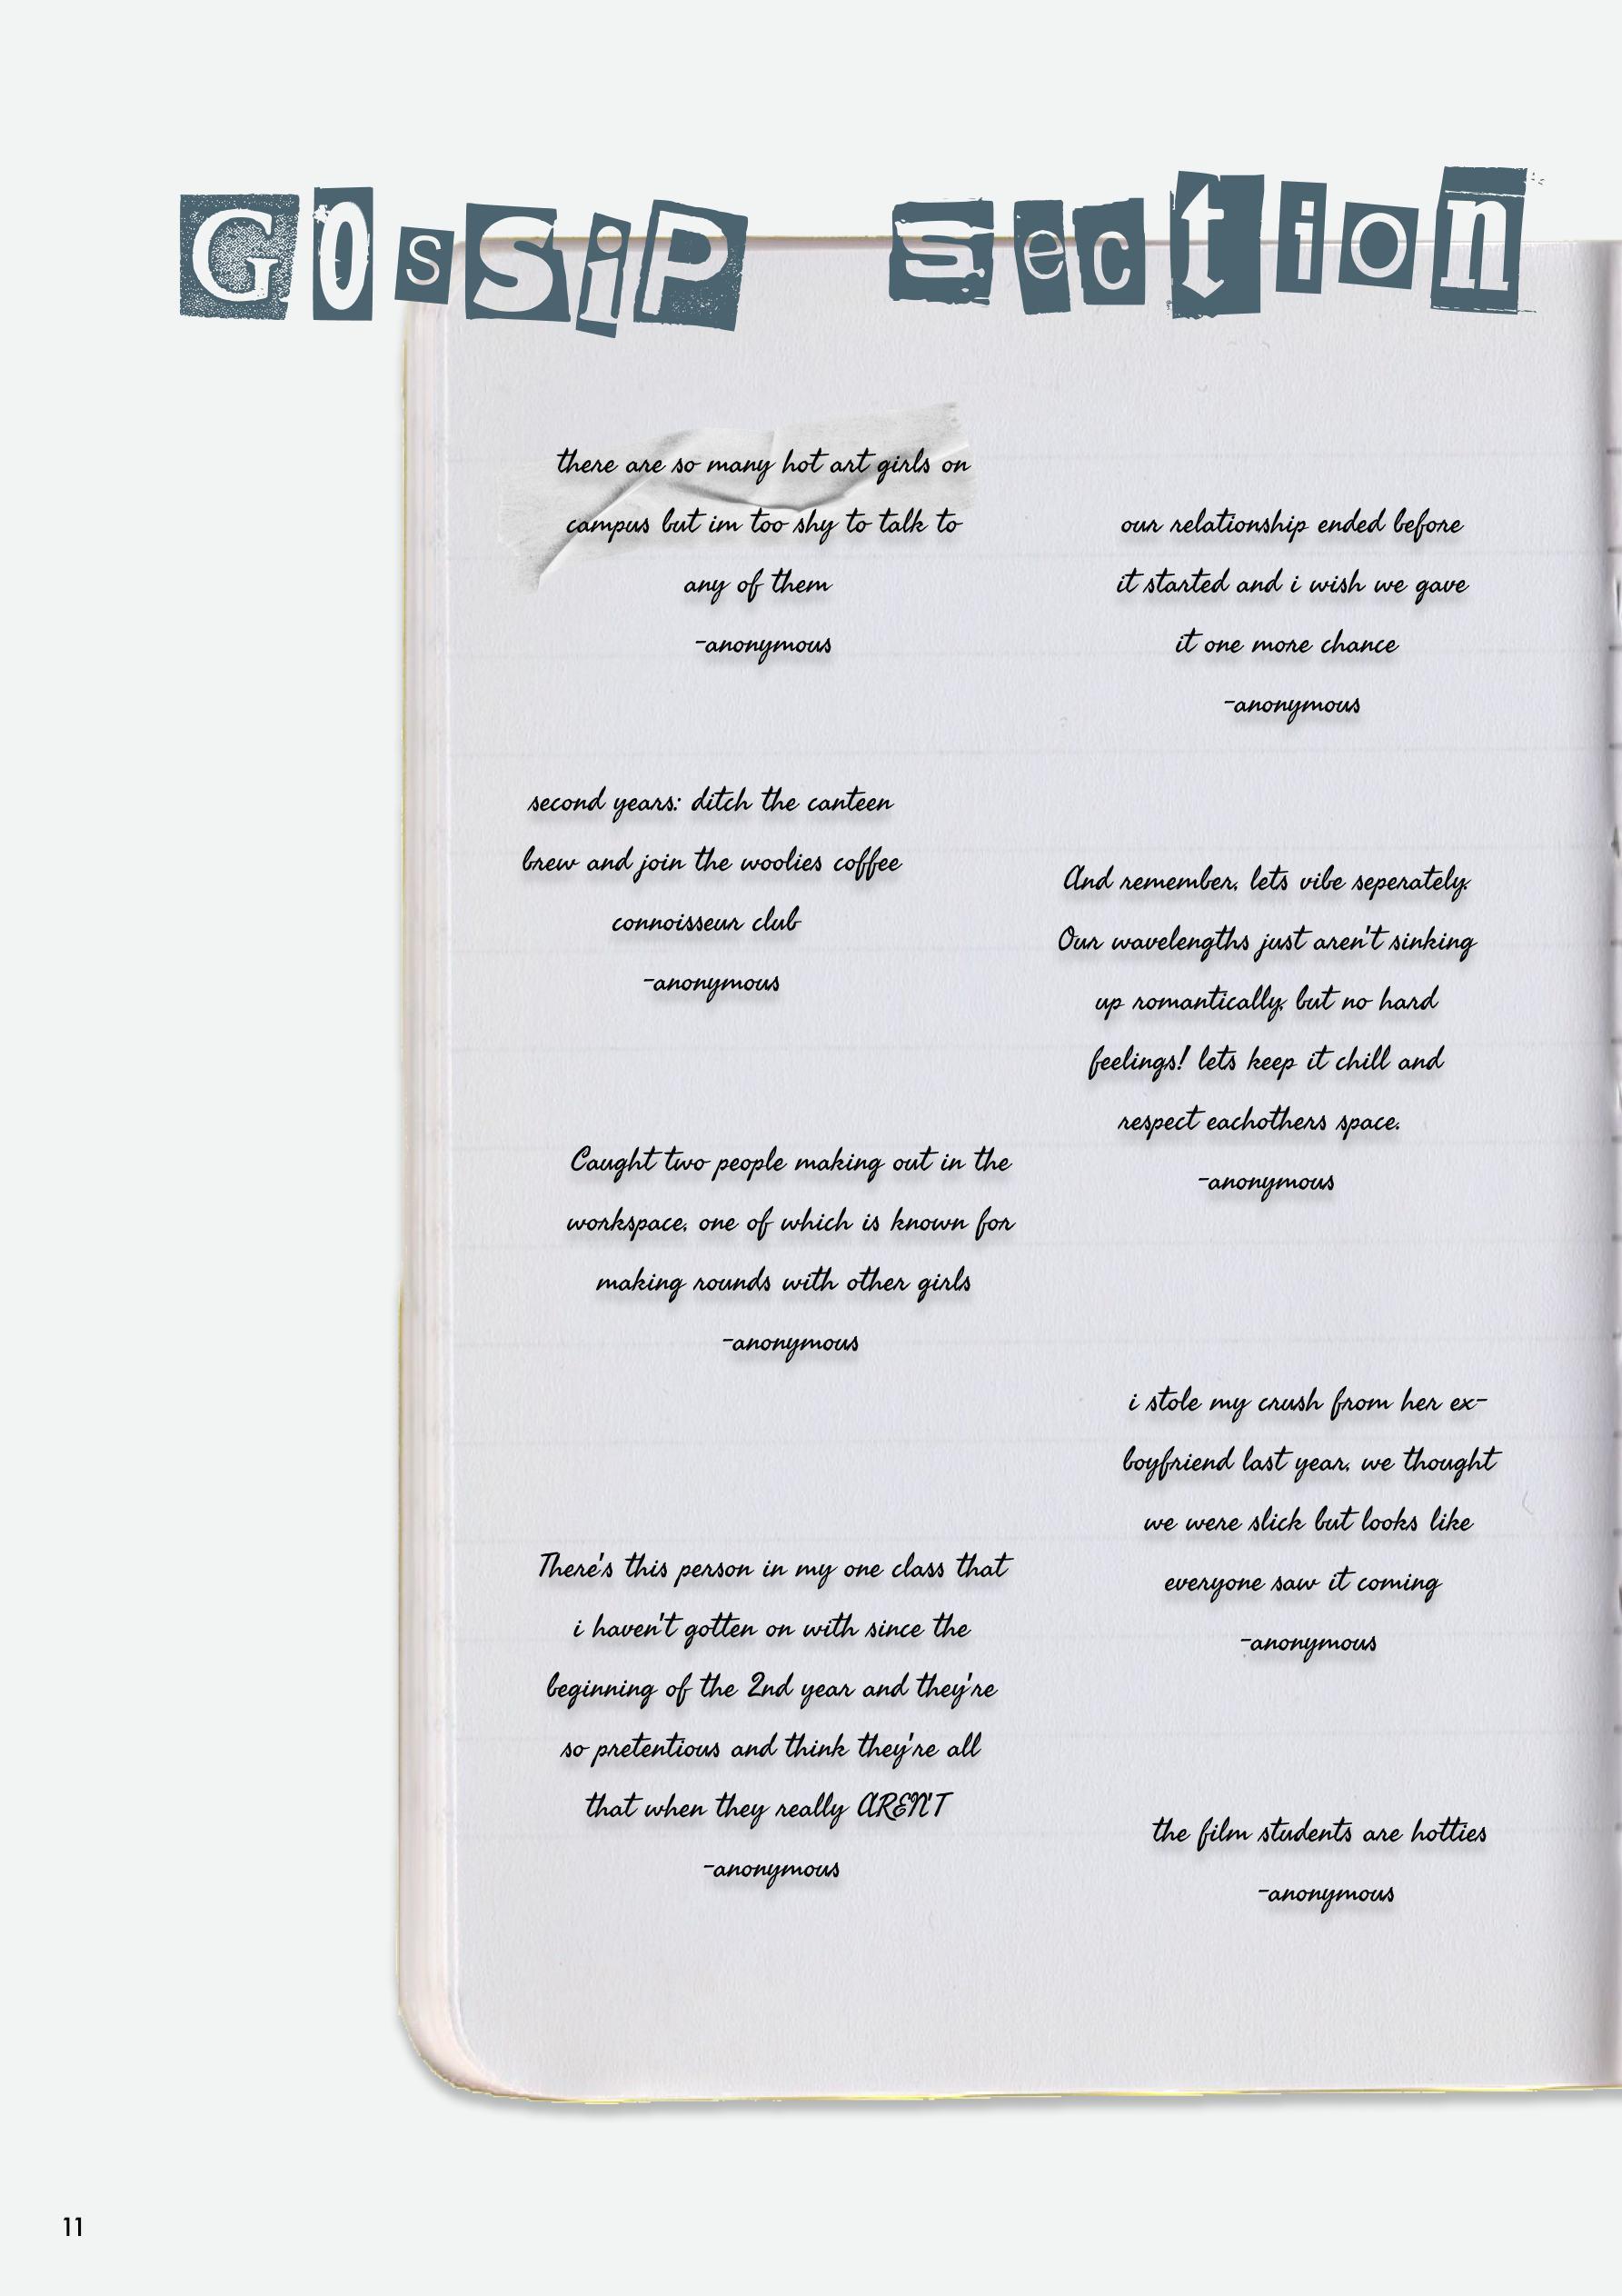 Gossip section
there are so many hot art girls on
campus but im too shy to talk to
any of them
-anonymous
second years: ditch the canteen
brew and join the woolies coffee
connoisseur club
-anonymous
Caught two people making out in the
workspace, one of which is known for
making rounds with other girls
-anonymous
There's this person in my one class that
i haven't gotten on with since the
beginning of the 2nd year and they're
so pretentious and think they're all
that when they really AREN'T
-anonymous
our relationship ended before
it started and i wish we gave
it one more chance
-anonymous
And remember, lets vibe seperately.
Our wavelengths just aren't sinking
up romantically, but no hard
feelings! lets keep it chill and
respect eachothers space.
-anonymous
i stole my crush from her ex-
boyfriend last year, we thought
we were slick but looks like
everyone saw it coming
-anonymous
the film students are hotties
-anonymous
11